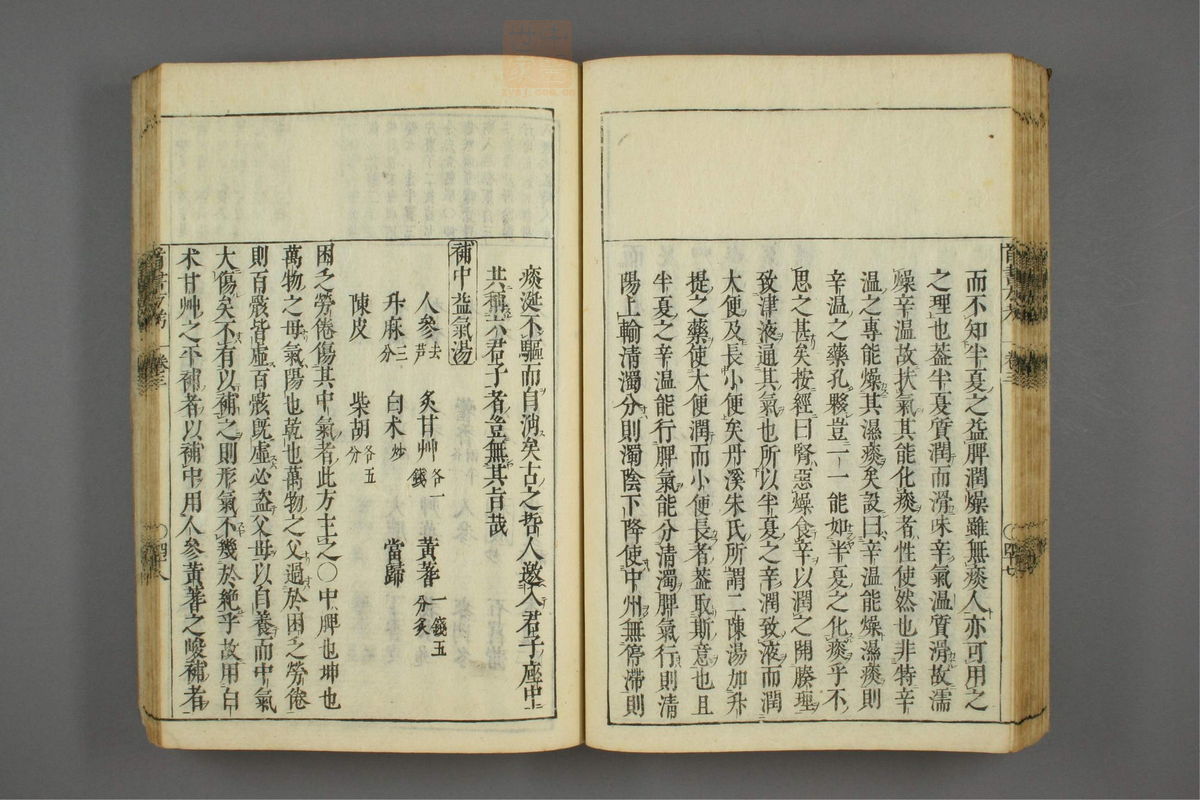 而不知半夏之益脾潤燥雖無痰人亦可用之
之理也蓋半夏質潤而滑味辛氣温質滑故濡
燥辛温故扶氣其能化痰者性使然也非特辛
温之專能燥其濕痰矣設曰辛温能燥濕痰則
辛温之藥孔夥豈一一能如半夏之化痰乎不
思之甚矣按經曰腎惡燥食辛以潤之開腠理
致津液通其氣也所以半夏之辛潤致液而潤
大便及長小便矣丹溪朱氏所謂二陳湯加升
提之藥使大便潤而小便長者蓋取斯意也且
半夏之辛温能行脾氣能分清濁脾氣行則清
陽上輸清濁分則濁陰下降使中州無停滯則
痰涎不驅而自消矣古之哲人邀入君子座中
共稱六君子者豈無其旨哉
補中益氣湯
人參去芦 炙甘艸各一錢 黃蓍一錢五分炙
升麻三分 白术炒 當歸
陳皮 柴胡各五分
困之勞倦傷其中氣者此方主之○中脾也坤也
萬物之母氣陽也乾也萬物之父過於困之勞倦
則百骸皆虛百骸既虛必盜父母以自養而中氣
大傷矣不有以補之則形氣不幾於絶乎故用白
术甘艸之平補者以補中用人參黃蓍之峻補者
卷三
四十七
卷三
四十八